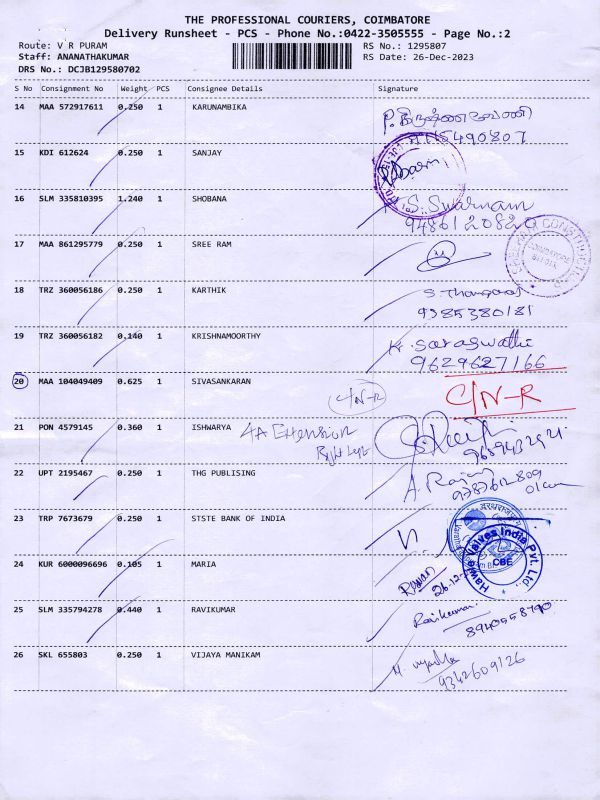 THE PROFESSIONAL COURIERS, COIMBATORE
Delivery Runsheet - PCS - Phone No.:0422-3505555 - Page No.:2
Route: V R PURAM RS No.: 1295807
Staff: ANANATHAKUMAR RS Date: 26-Dec-2023
DRS No.: DCJB129580702
S No Consignment No Weight PCS Consignee Details Signature
14 MAA 572917611 0.250 1 KARUNAMBIKA
15 KDI 612624 0.250 1 SANJAY
16 SLM 335810395 1.240 1 SHOBANA S. Swarnam
9486120820
17 MAA 861295779 0.250 1 SREE RAM
COIMBATORE
18 TRZ 360056186 0.250 1 KARTHIK S. Thangaraj
9385380181
19 TRZ 360056182 0.140 1 KRISHNAMOORTHY K. Saraswathi
9629627166
20 MAA 104049409 0.625 1 SIVASANKARAN C/N-R C/N-R
21 PON 4579145 0.360 1 ISHWARYA 4A Extension
Right
22 UPT 2195467 0.250 1 THG PUBLISING A.
23 TRP 7673679 0.250 1 STSTE BANK OF INDIA
Hawle Valves India Pvt. Ltd.
CBE
24 KUR 6000096696 0.105 1 MARIA
26-12-
25 SLM 335794278 0.440 1 RAVIKUMAR Ravikumar
8940558790
26 SKL 655803 0.250 1 VIJAYA MANIKAM
9342609126